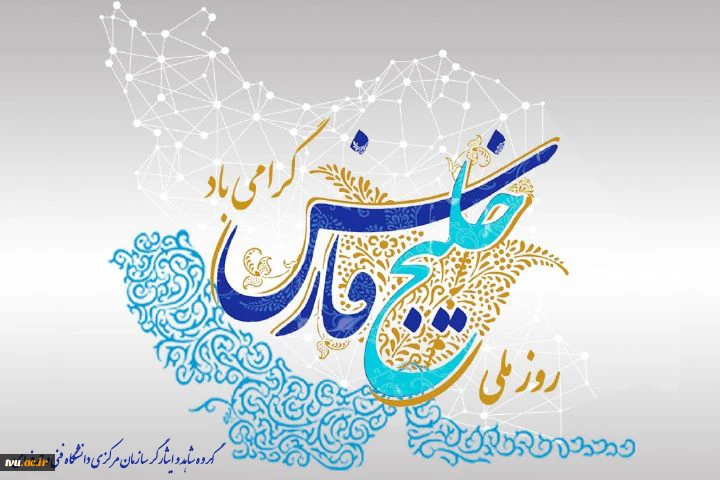 روز ملی
خلیج فارس
گرامی باد
گروه شاهد و ایثارگر سازمان مرکزی دانشگاه فنی و حرفه‌ای
tvu.ac.ir